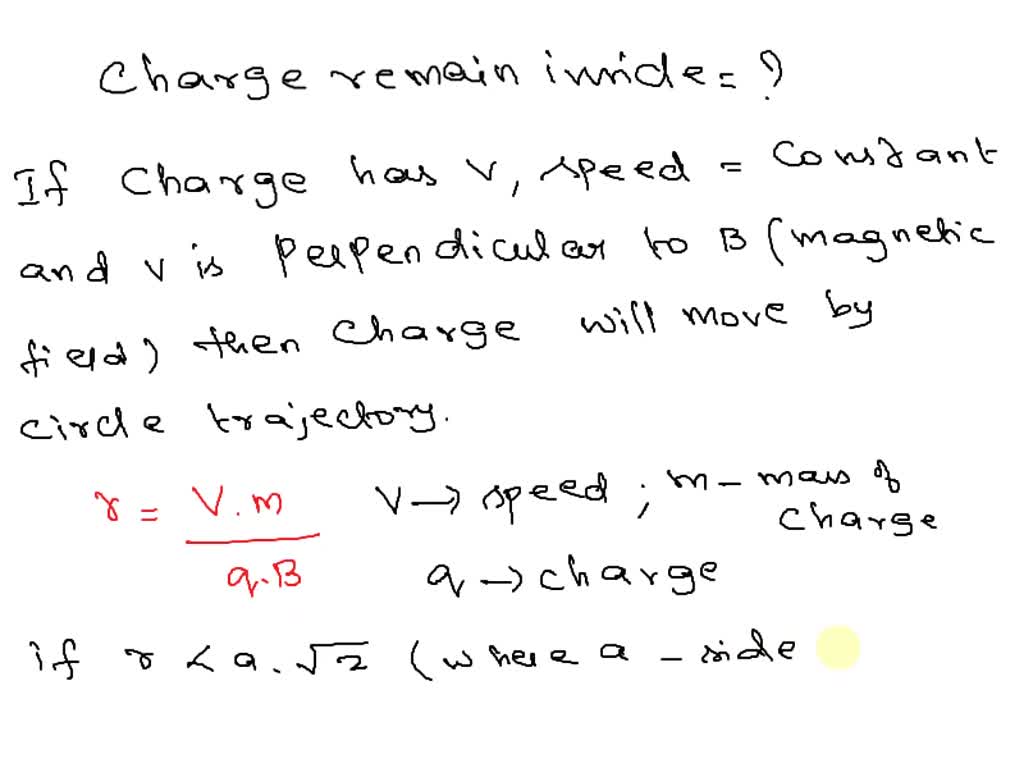 Charge remain inside = ?
If Charge has v, speed = constant
and v is perpendicular to B (magnetic
field) then Charge will move by
circle trajectory.
r = V.m / q.B V → speed ; m - mass of charge
q → charge
if r < a.√2 (where a - side